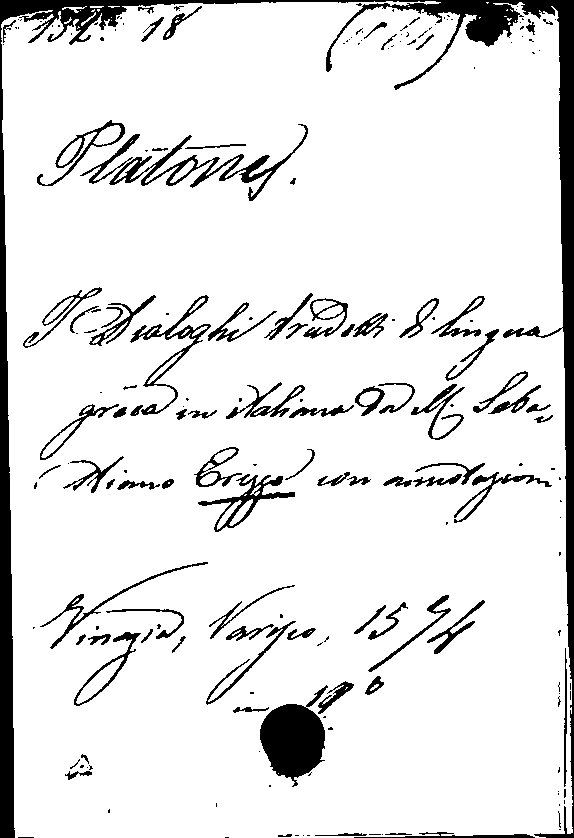 132. 18
Platone.
I Dialoghi tradotti di lingua
greca in italiana da M. Seba-
stiano Erizzo con annotazioni
Vinegia, Varisco, 1574
in